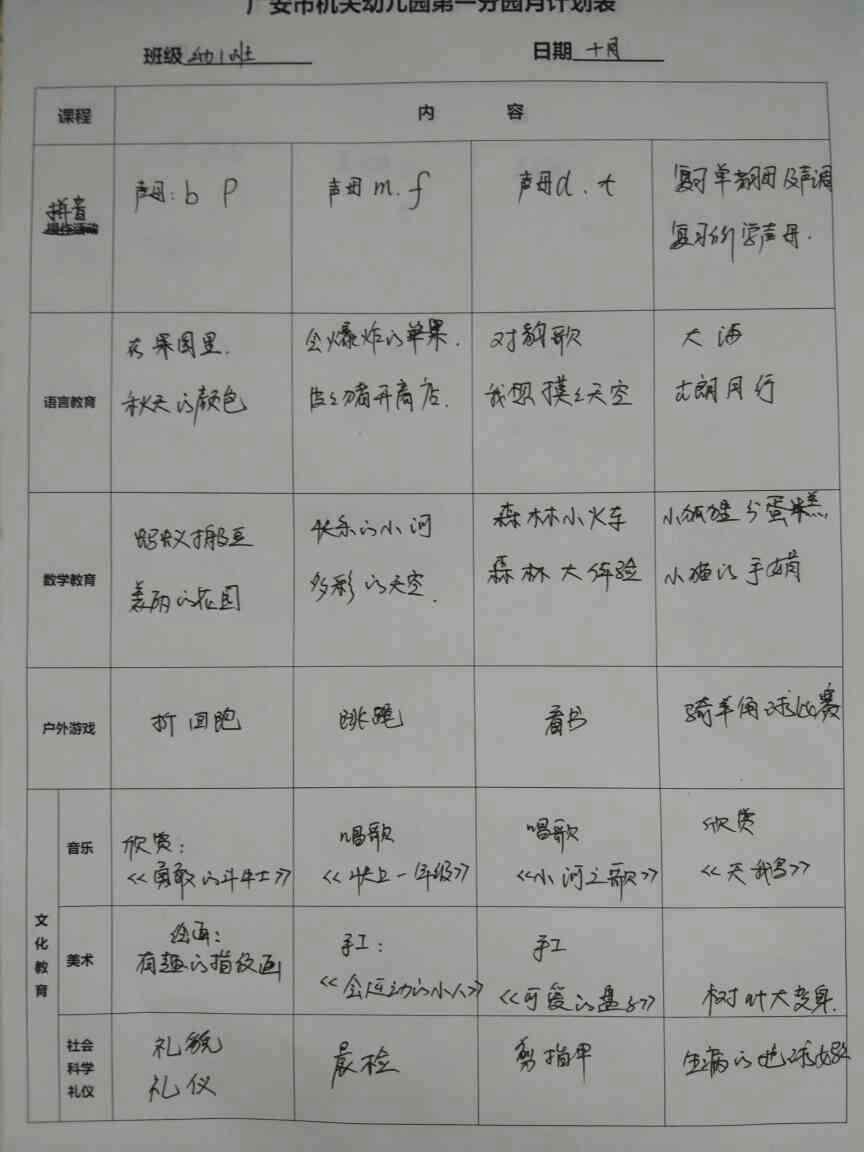 广安市机关幼儿园第一分园月计划表
班级 幼1班 日期 十月
课程 内 容
拼音 声母: b p 声母 m. f 声母 d . t 复习单韵母及声调
操作活动 复习所学声母.
语言教育 在果园里. 会爆炸的苹果. 对韵歌 大海
秋天的颜色 猪开商店. 我想摸摸天空 古朗月行
数学教育 蚂蚁搬豆 快乐的小河 森林小火车 小狐狸分蛋糕
美丽的花园 多彩的天空. 森林大体验 小猫的手绢
户外游戏 折回跑 跳绳 看书 骑羊角球比赛
文化教育
音乐 欣赏: 唱歌 唱歌 欣赏
《勇敢的斗牛士》 《快上一年级》 《小河之歌》 《天鹅》
美术 绘画: 手工: 手工
有趣的指纹画 《会运动的小人》 《可爱的盘子》 树叶大变身.
社会 礼貌 晨检 剪指甲 生病的地球妈妈
科学
礼仪 礼仪